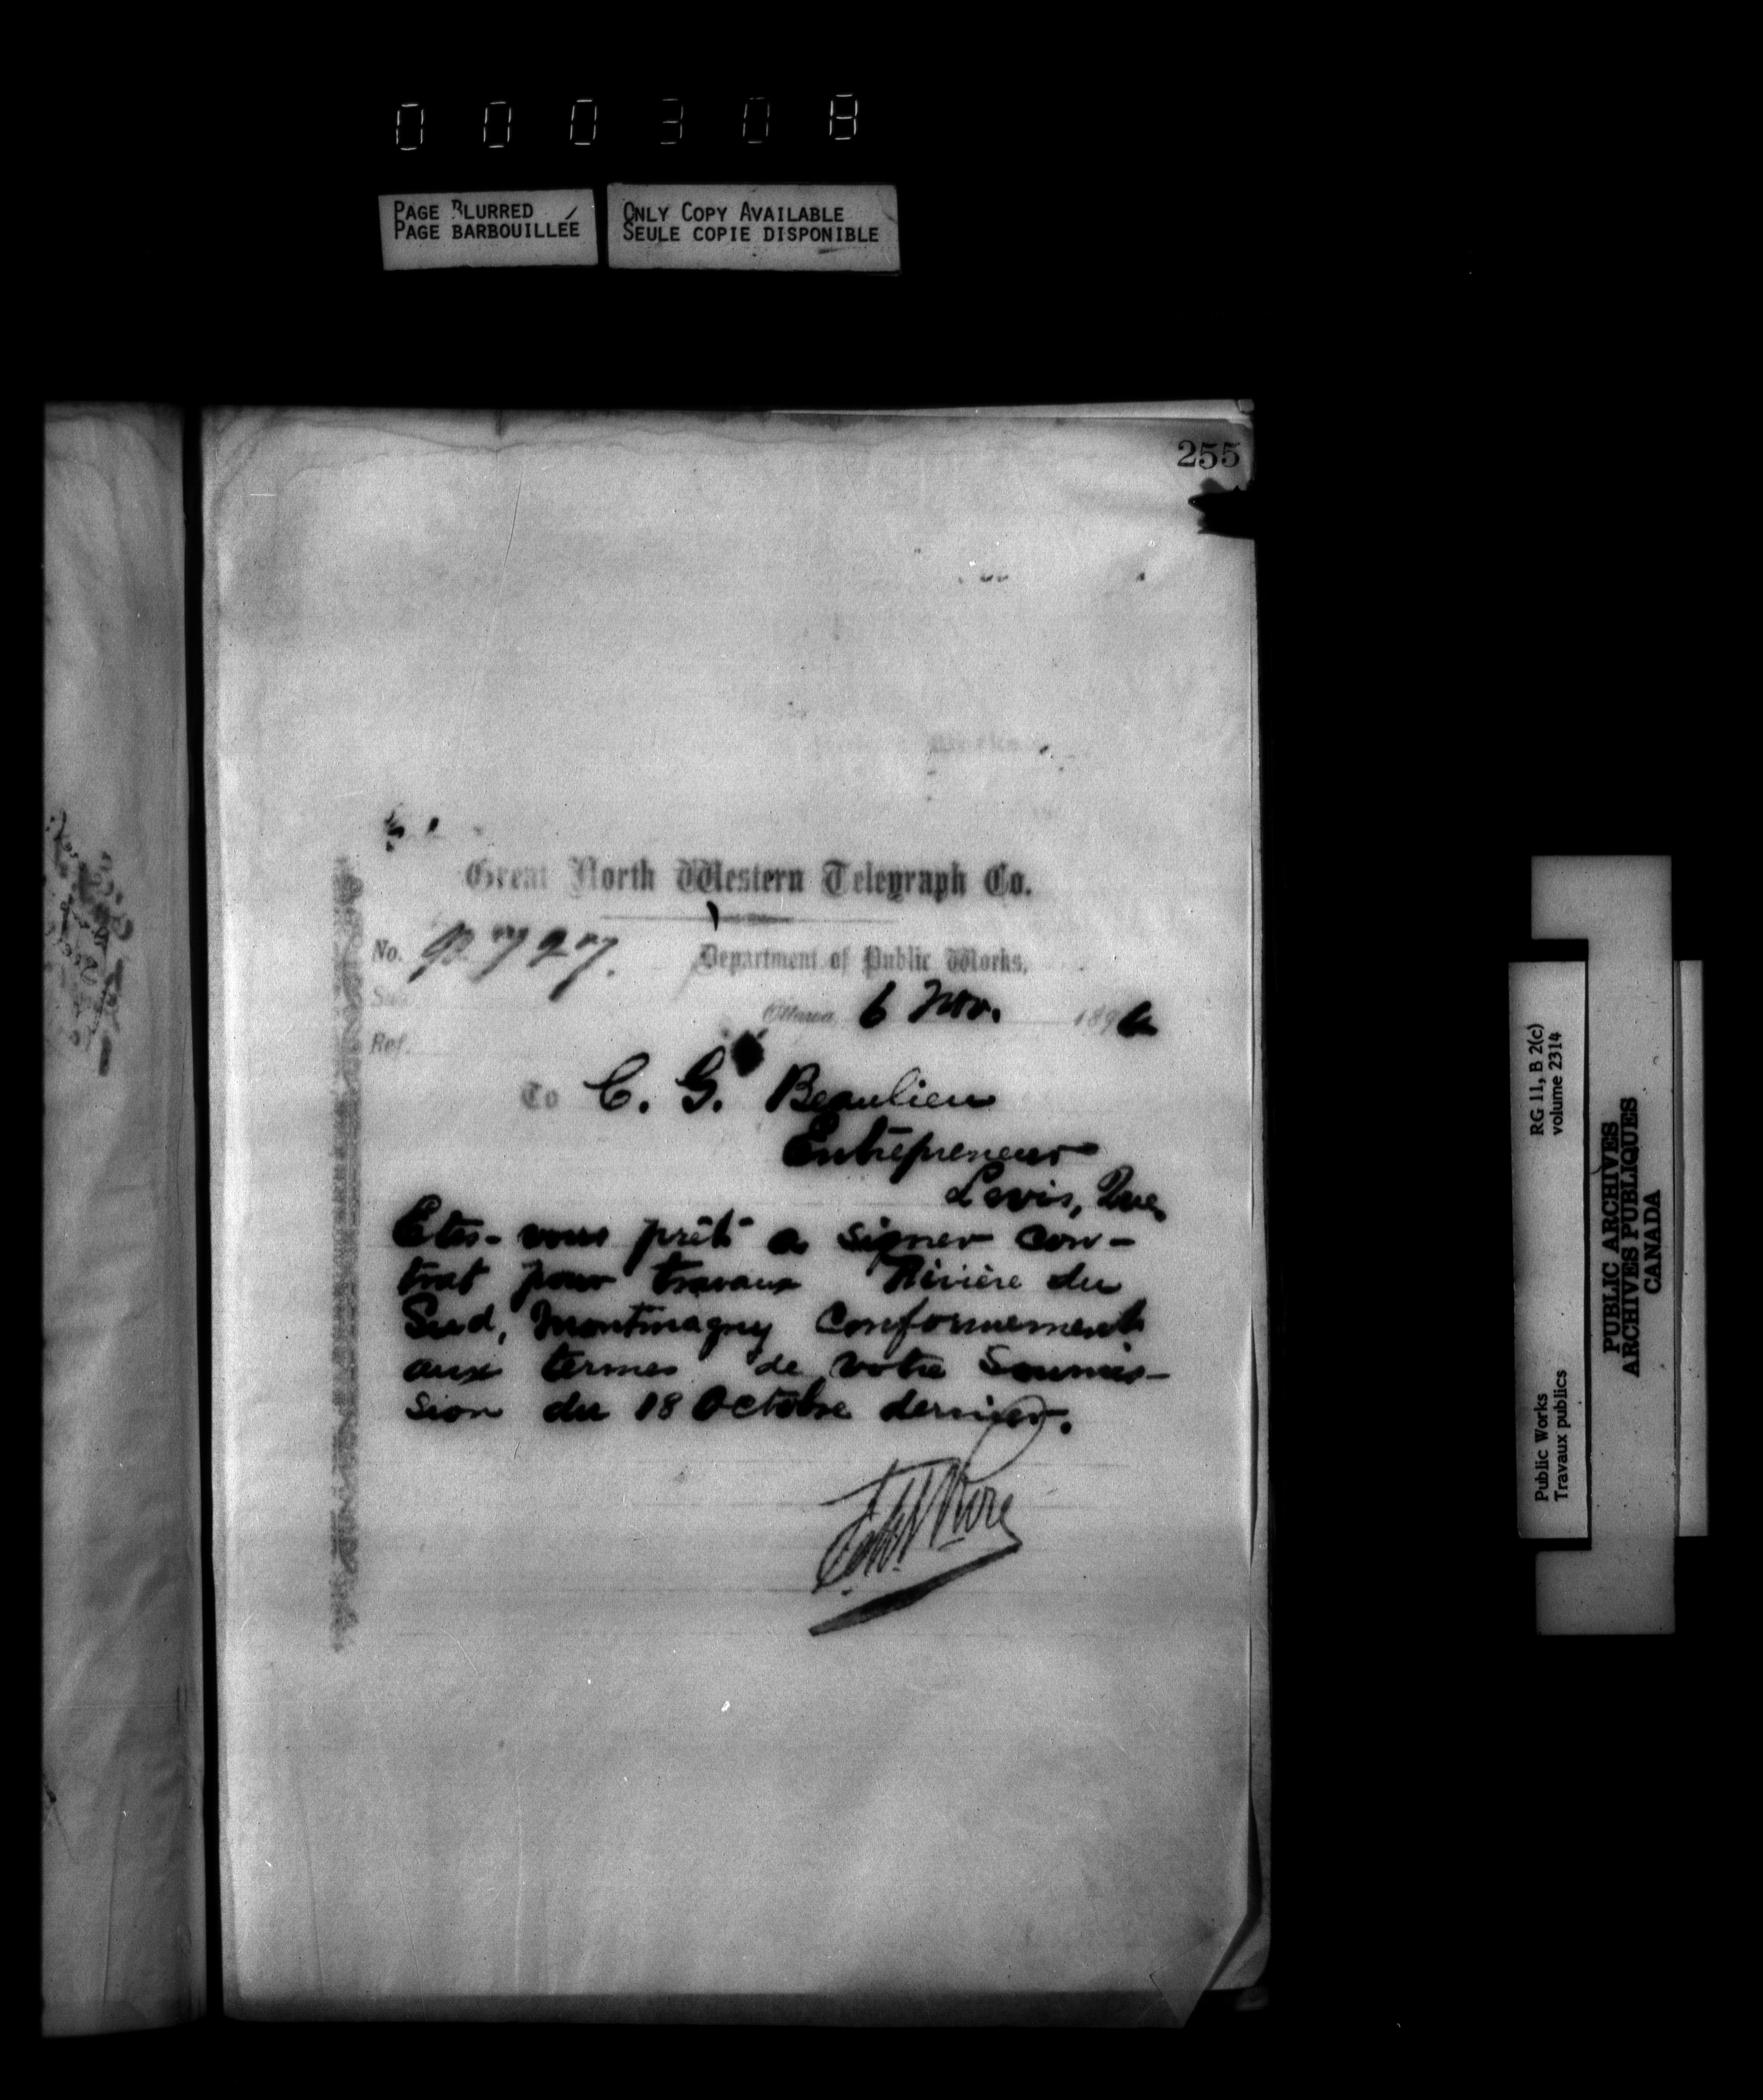 000308
PAGE BLURRED
PAGE BARBOUILLÉE
ONLY COPY AVAILABLE
SEULE COPIE DISPONIBLE
255
Great North Western Telegraph Co.
No. 92727.
Department of Public Works,
Ottawa, 6 Nov. 189
Ref.
To C. G. Beaulieu
Entrepreneur
Levis, Que
Etes-vous prêt à signer con-
trat pour travaux Rivière du
Sud, Montmagny Conformement
aux termes de votre Soumis-
sion du 18 Octobre dernier.
RG 11, B 2(c)
volume 2314
Public Works
Travaux publics
PUBLIC ARCHIVES
ARCHIVES PUBLIQUES
CANADA